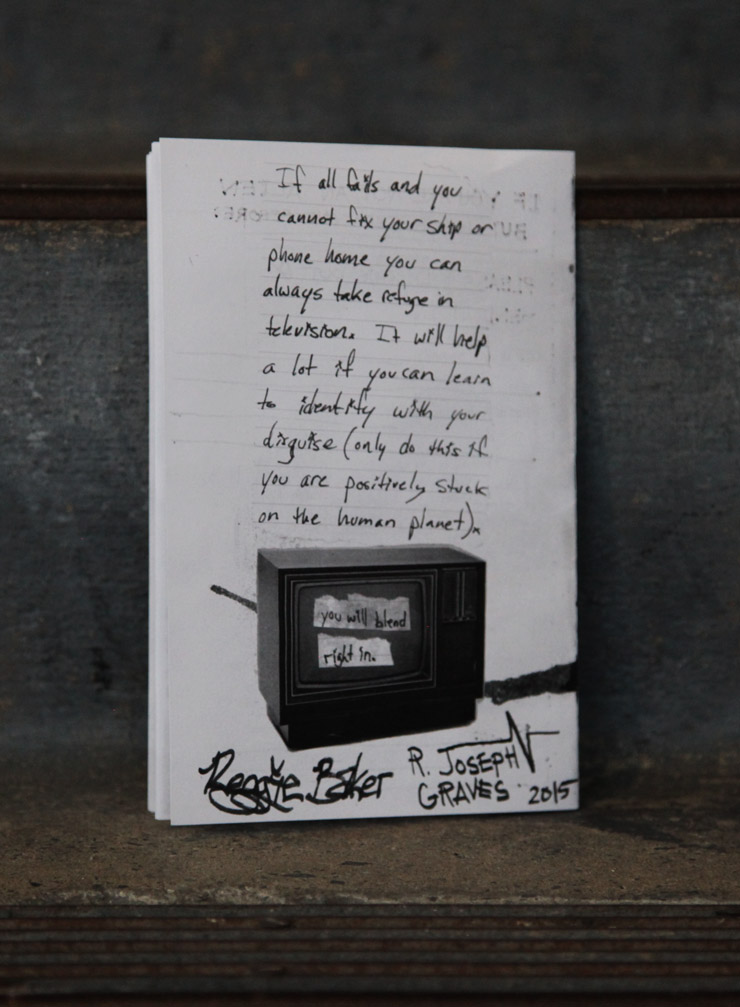 If all fails and you
cannot fix your ship or
phone home you can
always take refuge in
television. It will help
a lot if you can learn
to identify with your
disguise (only do this if
you are positively stuck
on the human planet).
you will blend
right in.
Reggie Baker
R. JOSEPH
GRAVES 2015